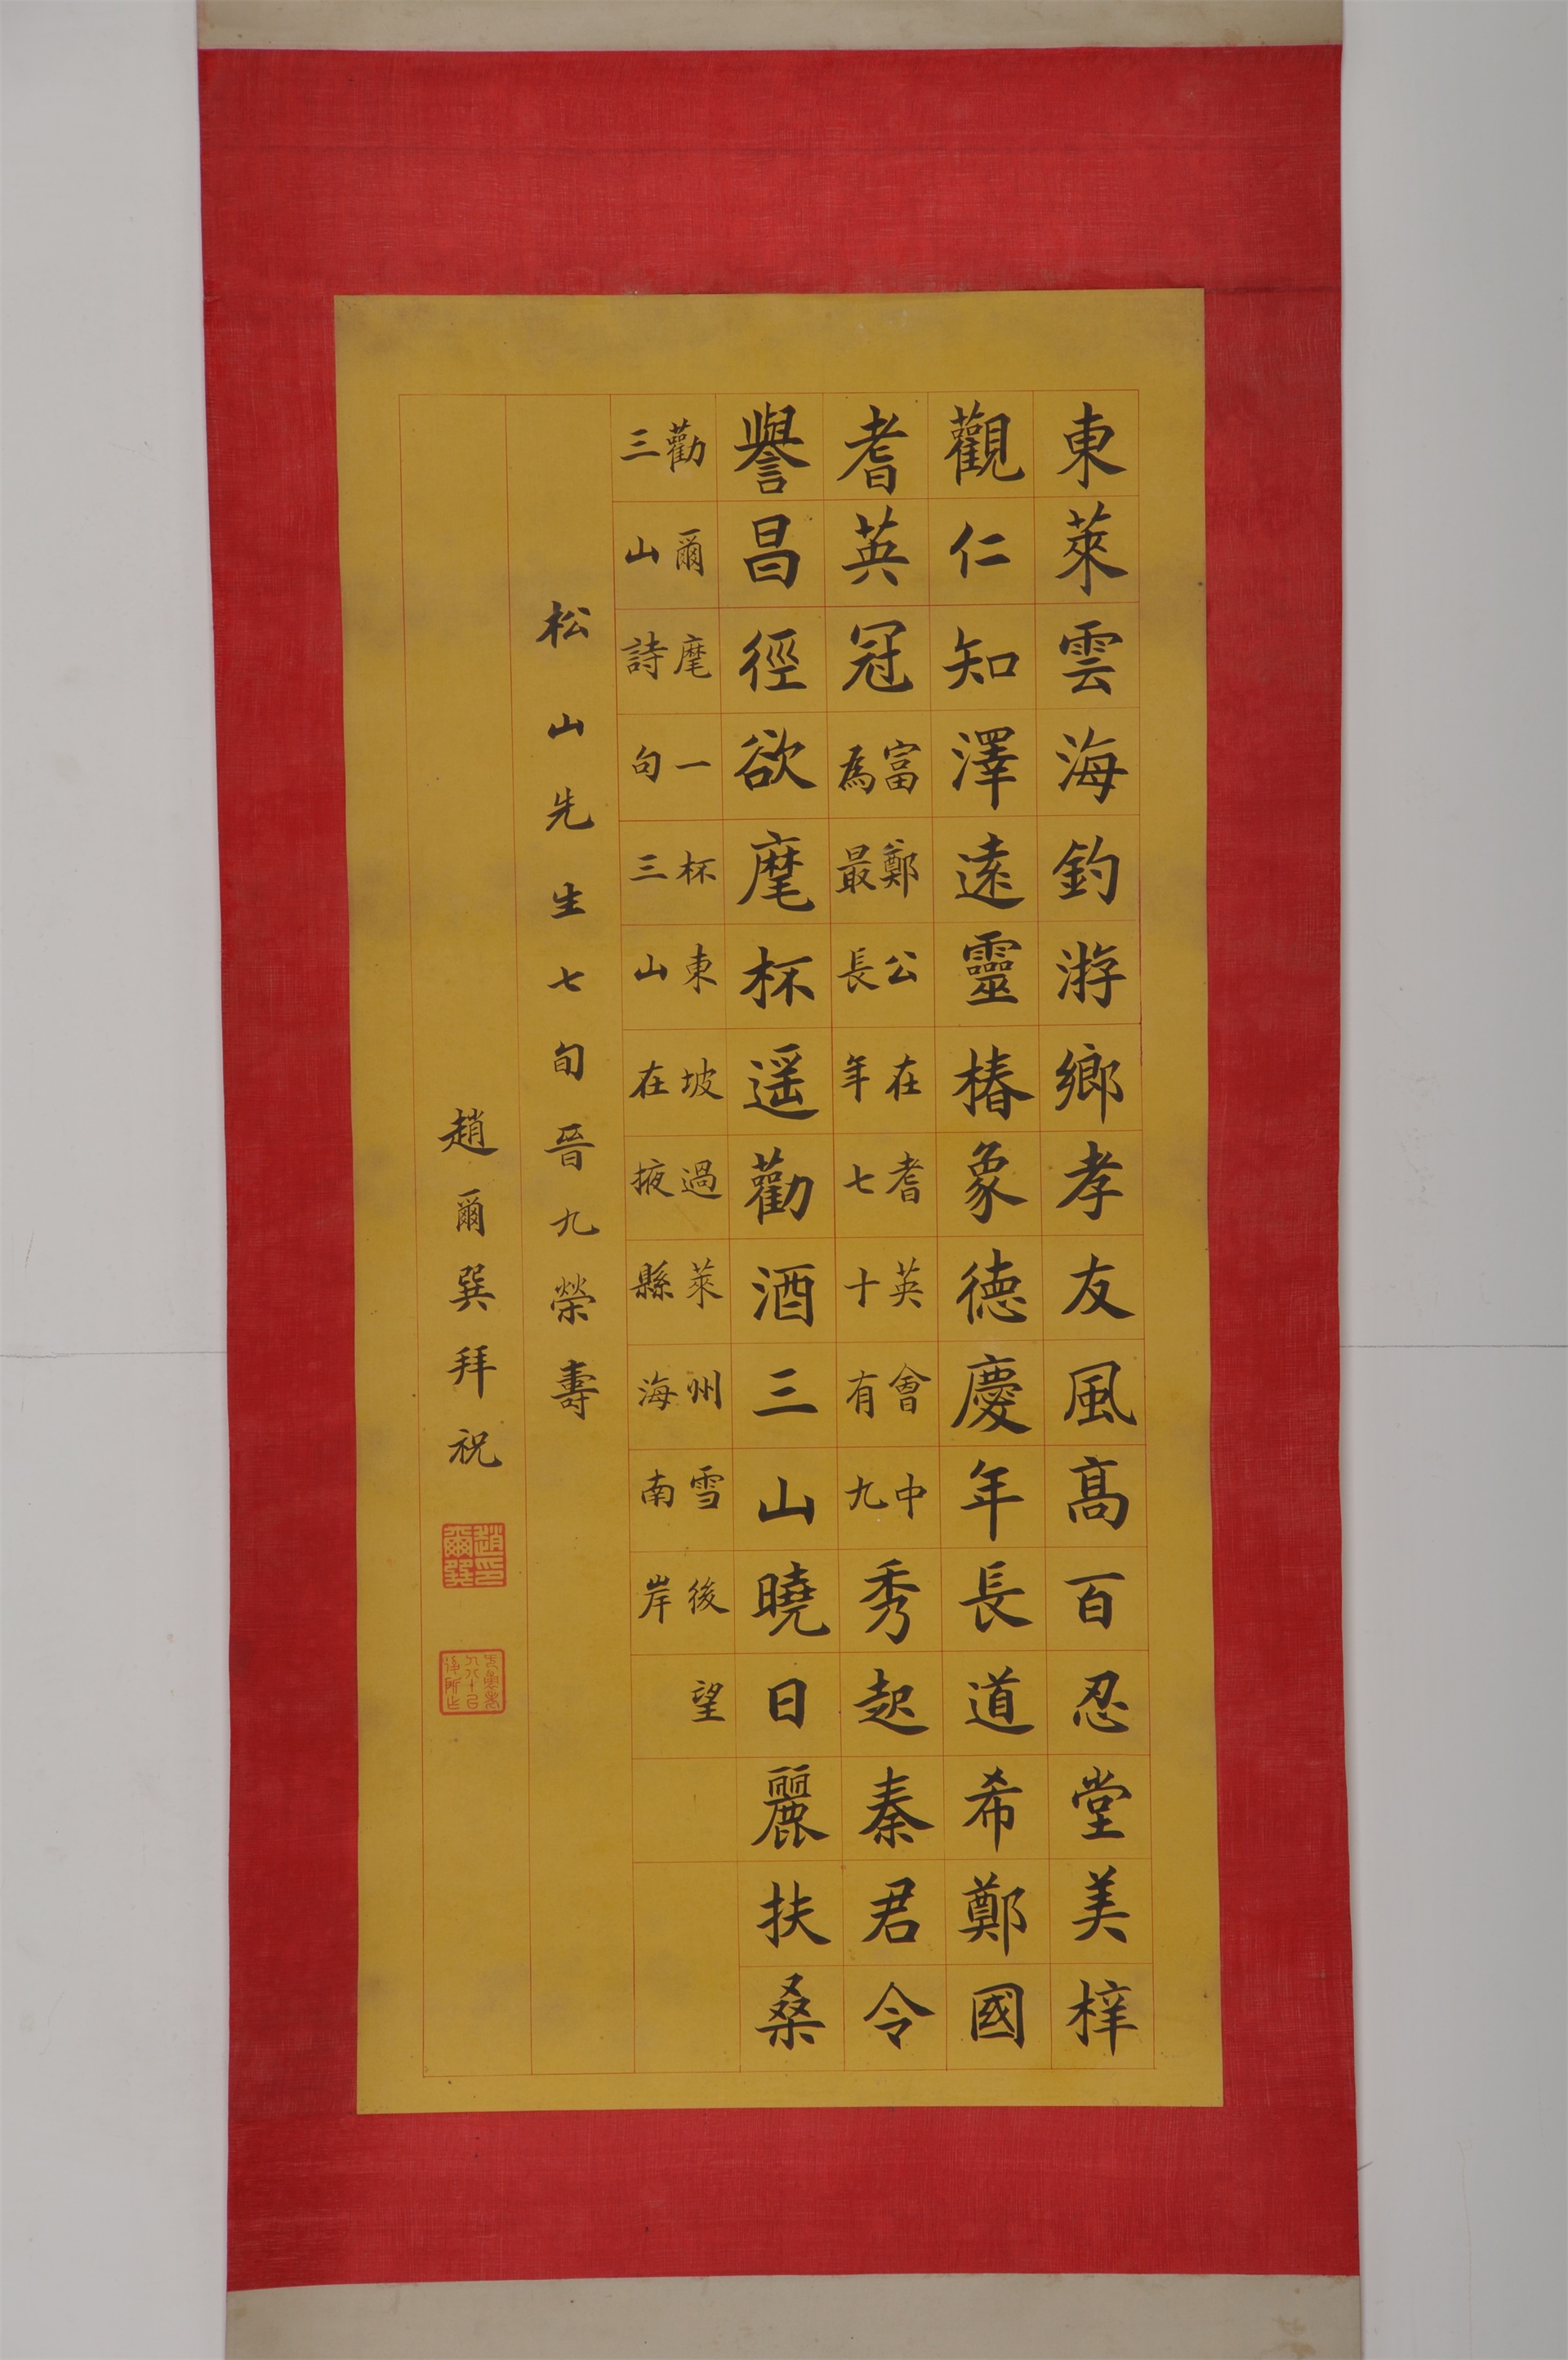 東萊雲海釣游鄉孝友風高百忍堂美梓
觀仁知澤遠靈椿象德慶年長道希鄭國
耆英冠
富鄭公在耆英會中
為最長年七十有九
秀起秦君令
譽昌徑欲麾杯遥勸酒三山曉日麗扶桑
勸爾麾一杯東坡過萊州雪後望
三山詩句三山在掖縣海南岸
松山先生七旬晉九榮壽
趙爾巽拜祝
趙印爾巽